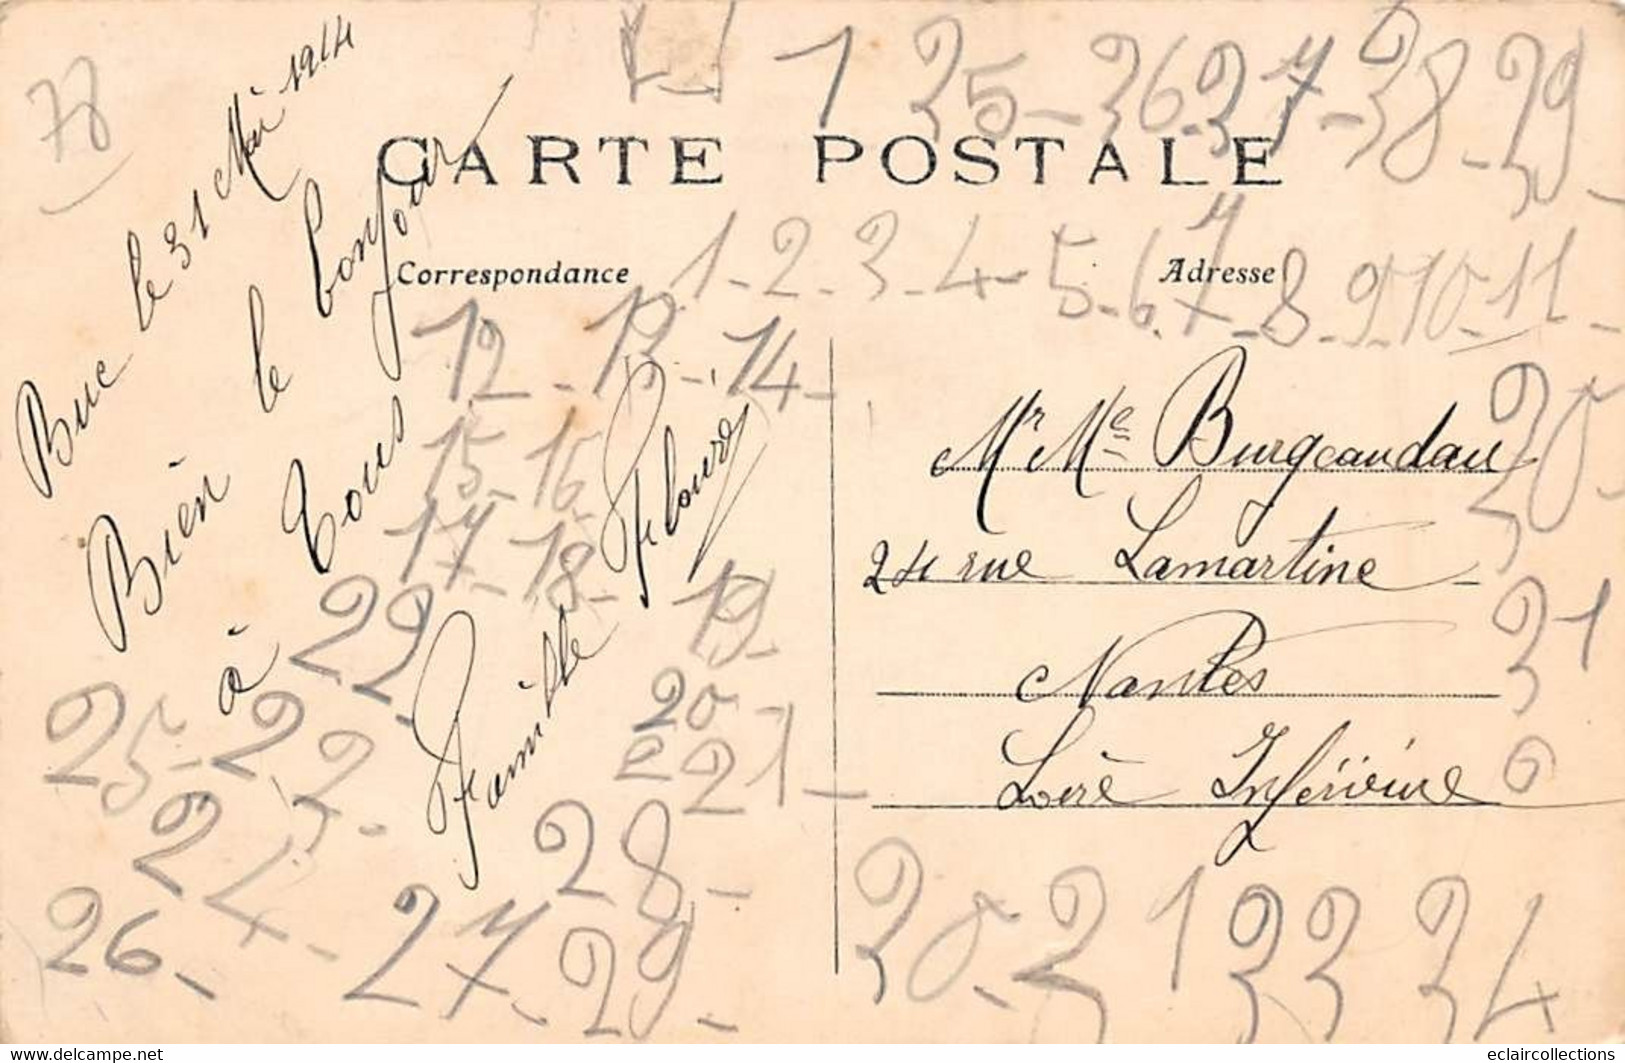 78
1 35-36-37-38-39-
CARTE POSTALE
Buc le 31 Mai 1914
Bien le bonjour
à Tous
Famille
Correspondance
Adresse
1-2-3-4-5-6-7-8-9-10-11-
12-13-14-
15-16
17-18-
19-
20-
21-
29
25-22
23-
24-
26-
27
28-
29-
Mr Me Burgeaudau
24 rue Lamartine
Nantes
Loire Inférieure
30-
31
0
30-31 33 34
eclaircollections